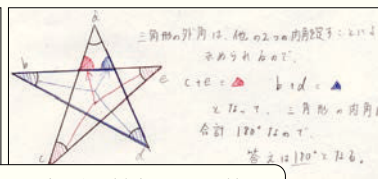 a
三角形の外角は、他の2つの内角を足すことによ
b
求められるので、
e
c+e=
b+d=
となって、三角形の内角
合計180°なので、
c
d
答えは180°となる。